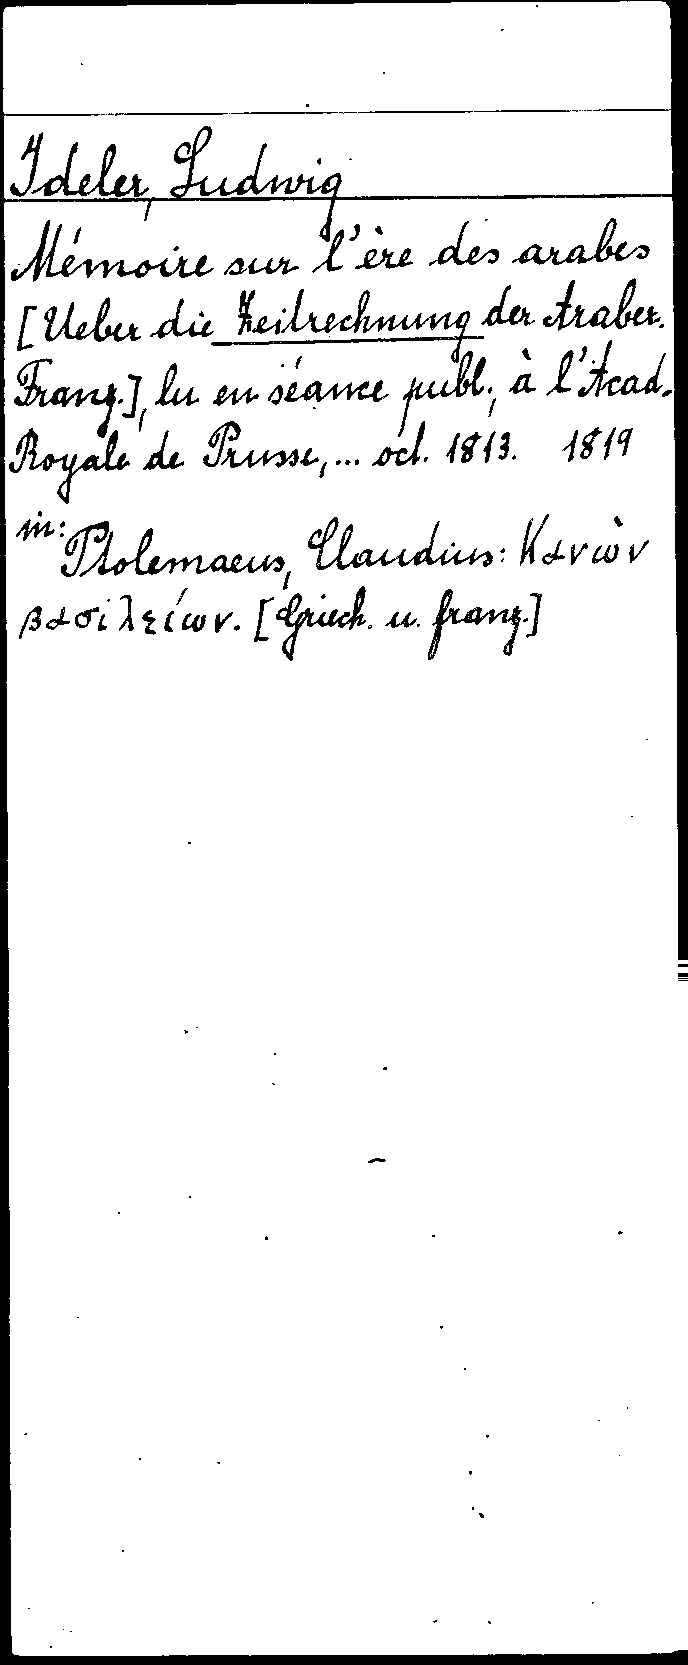 Ideler, Ludwig
Mémoire sur l'ère des arabes
[Ueber die Zeitrechnung der Araber.
Franz.], lu en séance publ., à l'Acad.
Royale de Prusse,... oct. 1813. 1819
in:
Ptolemaeus, Claudius: Κανὼν
βασιλείων. [Griech. u. franz.]